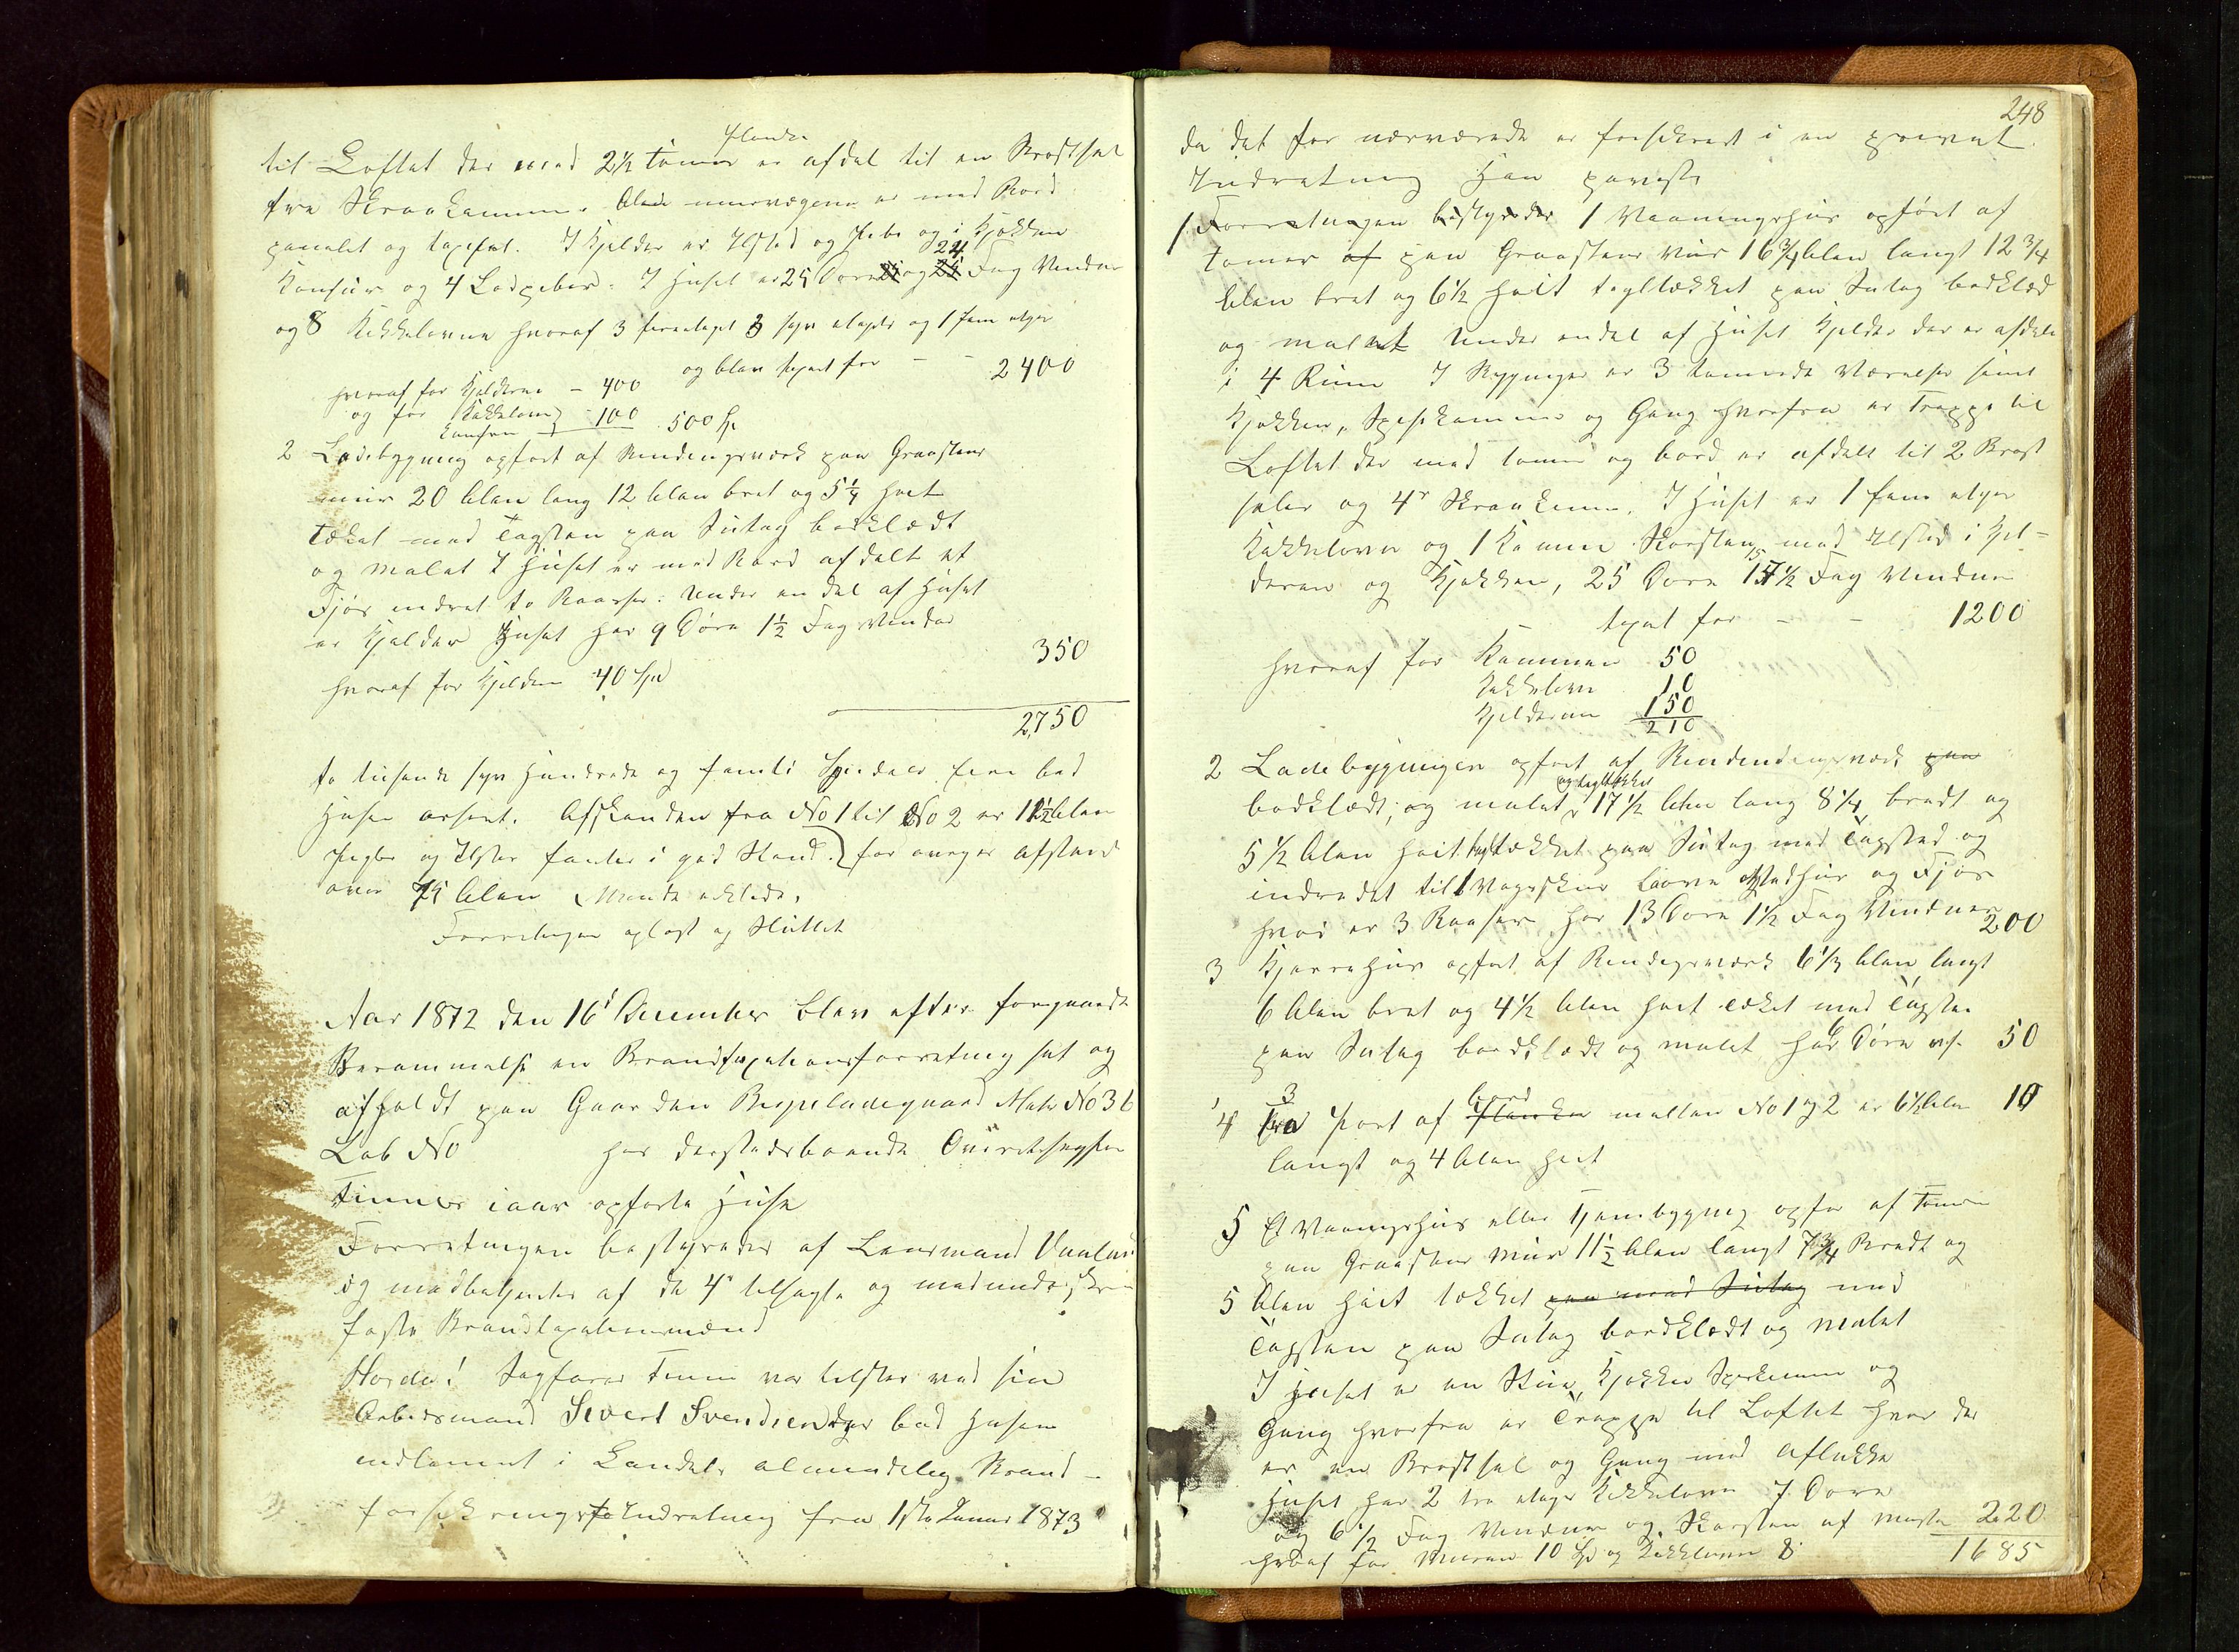 til Loftet der med 2½ tomer Planke er afdel til en Brostsal
fra Skraakamme. Alle innervægene er med Bord
panelet og tapetset. I Kjelder er Ilsted og Pibe og i Kjøkken
Komfur og 4 Ladpiber. I Huset er 25 Døre og 24 Fag Vinduer
og 8 Kakkelovne hvoraf 3 fireetages 3 syv etages og 1 fem etger
og blev taxert for - - 2400
hvoraf for Kjelderne - 400
og for Kakkelovn - 100 500 Sp.
Komfur
2 Ladebygning opført af Bindingsverk paa Graastens
muur 20 Alen lang 12 Alen bret og 5¼ høit
tækket med Tagsten paa Sutag bordklædt
og malet I Huset er med Bord afdelt et
Fjøs indret to Baaser. Under en del af Huset
er Kjelder Huset har 9 Døre 1½ Fag Vinder
350
hvoraf for Kjelderen 40 Spd
2,750
to tusende syv Hundrede og femti Speciedaler Eiere bad
Husene asseret. Afstanden fra No 1 til No 2 er 11½ Alen
Piber og Ilsteder fantes i god Stand. for øvrigt Afstand
over 75 Alen
Forretningen oplæst og Sluttet
Aar 1872 den 16de December blev efter foregaaende
Berammelse en Brandtaxationsforretning sat og
afholdt paa Gaarden Bispeladegaard Matr No 36
Løb No har derstedsboende Overretssagfører
Finne iaar opførte Huse
Forretningen bestyredes af Lensmand
og medbetjentes af de 4re tilsagte og medunderskrevne
faste Brandtaxationsmænd
Horda! Sagfører Finne var tilstede ved sin
Arbeidsmand Sivert Svendsen der bad Husene
indlemmet i Landets almindelig Brand-
forsikringsindretning fra 1ste Januar 1873
248
da det for nærværende er forsikret i en privat
Indretning Han paaviste
1 Forretningen bestyredes 1 Vaaningshus opført af
tømer af paa Graastens Mur 16¾ Alen langt 12¾
Alen bret og 6½ høit tegltækket paa Sutag bordklæd
og malet Under endel af Huset Kjelder der er afdelt
i 4 Rum I Bygningen er 3 tømrede Værelser samt
Kjøkken, Spisekammer og Gang hvorfra er Trappe til
Loftet der med tømer og bord er afdelt til 2 Brost
saler og 4r Skraakamer. I Huset er 1 fem etger
Kakkelovn og 1 Kamin Skorsten med Ilsted i Kjel-
deren og Kjøkken, 25 Døre 15½ Fag Vinduer
taxert for - - 1200
hvoraf for Kaminen 50
Kakkelovn 10
Kjelderne 150
210
2 Ladebygningen opført af Bindingsværk paa
bordklædt, og malet og tegltækket 17½ Alen lang 8¼ bredt og
5½ Alen høit tegltækket paa Sutag med Tagsten og
indredet til 1 Vognskur Laave Vedhus og Fjøs
hvori er 3 Baaser har 13 Døre 1½ Fag Vinduer 200
3 Kjerrehus opført af Bindingsværk 6⅓ Alen langt
6 Alen bret og 4½ Alen høit tækket med Tagsten
paa Sutag bordklædt og malet har 6 Døre 50
4 3 Port af bord Planker mellem No 1 og 2 er 6½ Alen 10
langt og 4 Alen høit
5 Et Vaaningshus eller Hjembygning opført af Tømer
paa Graastens Muur 11½ Alen langt 7¾ Bredt og
5 Alen høit tækket paa med Sutag med
Tagsten paa Sutag bordklædt og malet
I Huset er en Stue, Kjøkken Spisekamer og
Gang hvorfra er Trappe til Loftet hvor der
er en Brostsal og Gang med Aflukke
Huset har 2 tre etages Kakkelovne 7 Døre
og 6½ Fag Vinduer og Skorsten af Mursten 220
hvoraf for Muren 10 Spd og Kakkelovne 8 1685